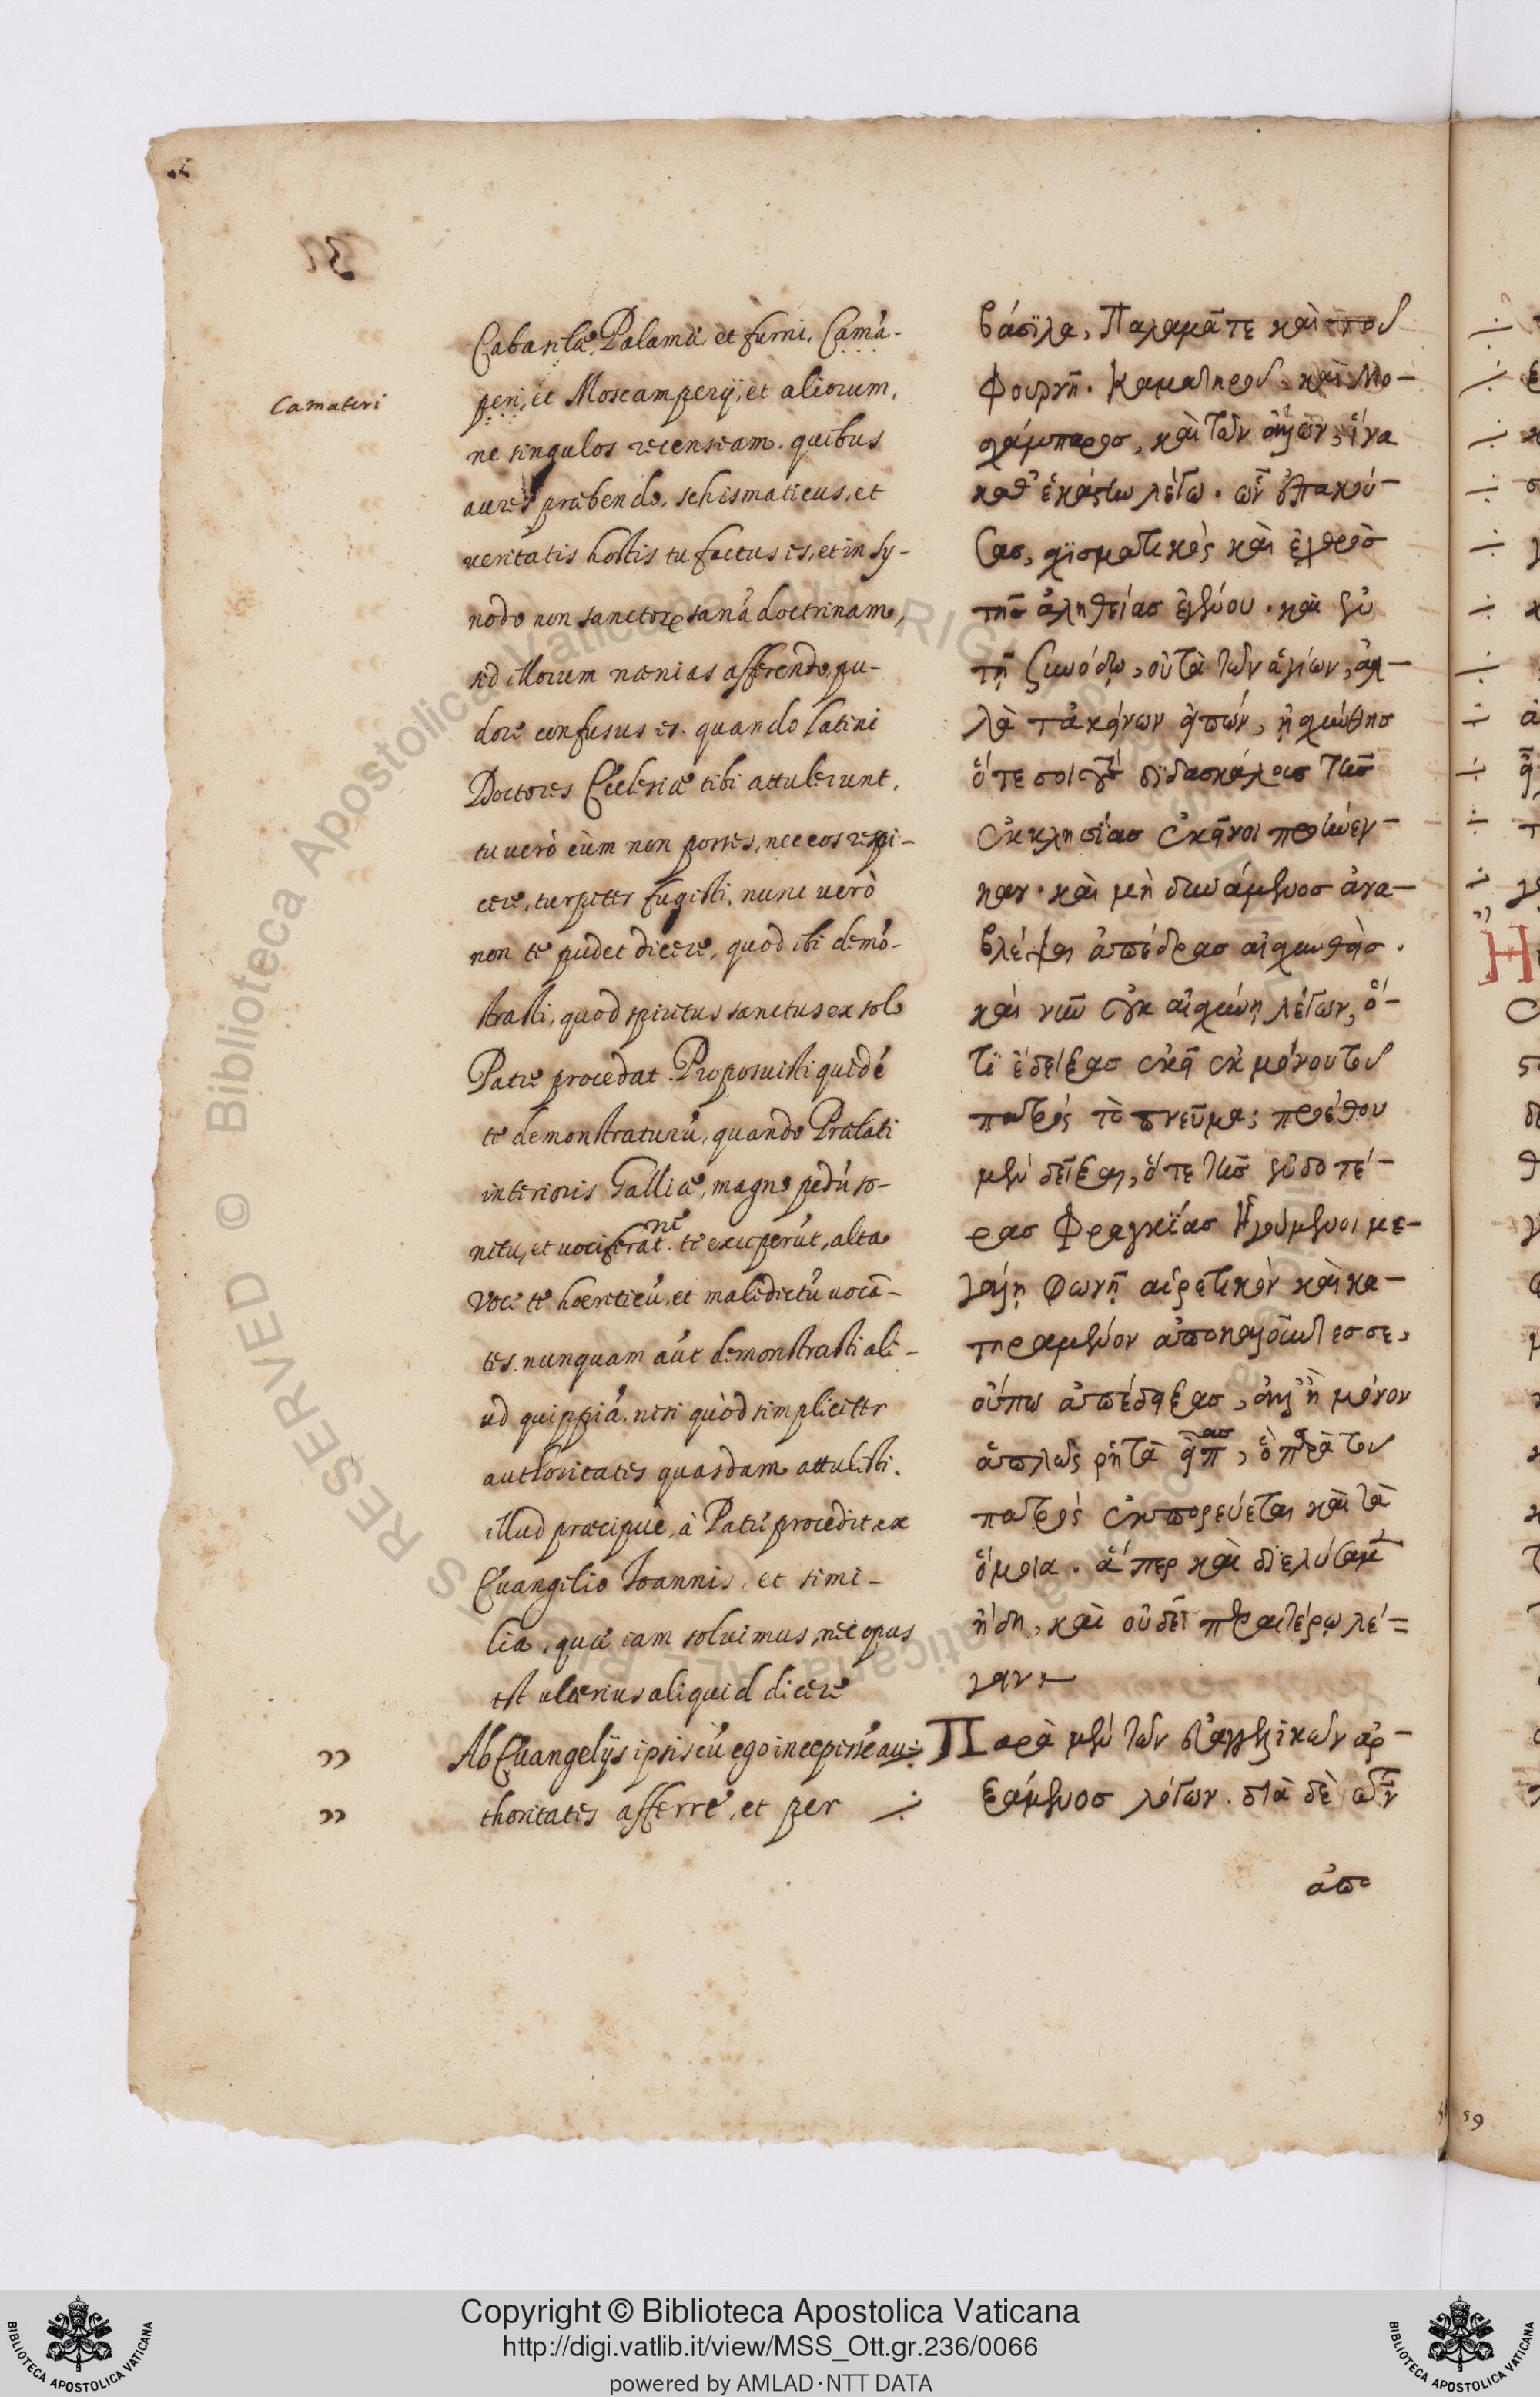 Cabasilæ, Palamæ, et furni, Camá-
Camateri
peri, et Moscamperij, et aliorum,
ne singulos recenseam. quibus
aures præbendo, schismaticus, et
veritatis hostis tu factus es, et in sy-
nodo non sanctorũ sanã doctrinam,
sed illorum nænias afferendo, pu-
dore confusus es. quando latini
Doctores Ecclesiæ tibi attulerunt,
tu verò cùm non posses, nec eos respi-
cere, turpiter fugisti, nunc verò
non te pudet dicere, quod ibi demõ-
strasti, quod spiritus sanctus ex solo
Patre procedat. Proposuisti quidẽ
te demonstraturũ, quando Prælati
interioris Galliæ, magno pedũ so-
nitu, et vociferatione te exceperũt, alta
voce te hoereticũ, et maledictũ vocã-
tes. nunquam aũt demonstrasti ali-
ud quippiã, nisi quòd simpliciter
authoritates quasdam attulisti.
illud præcipuè, à Patre procedit ex
Euangelio Ioannis, et simi-
lia, quæ iam soluimus, nec opus
est ulterius aliquid dicere
Ab Euangelijs ipsis cũ ego incepissẽ au-
thoritates afferre, et per
βάσιλα, Παλαμᾶ τε καὶ τοῦ
Φουρνῆ. Καματηροῦ, καὶ Μο-
σχάμπαρος, καὶ τῶν ἄλλων, ἵνα
καθ' ἑκάστω λέγω. ὧν ὑπακού-
σας, σχϊσματικὸς καὶ ἐχθρὸς
τῆς ἀληθείας ἐγένου. καὶ ἐν
τῇ συνόδῳ, οὐ τὰ τῶν ἁγίων, ἀλ-
λὰ τἀκείνων εἰπών, ᾐσχύνθης
ὅτε σοι τοὺς διδασκάλους τῆς
ἐκκλησίας ἐκεῖνοι προὔνεγ-
καν. καὶ μὴ δυνάμενος ἀνα-
βλέψαι ἀπέδρας αἰσχυνθείς.
καὶ νῦν οὐκ αἰσχύνῃ λέγων, ὅ-
τϊ ἔδειξας ἐκεῖ ἐκ μόνου τοῦ
πατρός τὸ πνεῦμα; προέθου
μὲν δεῖξαι, ὅτε τῆς ἐνδοτέ-
ρας Φραγκίας Ἡγούμενοι με-
γάλῃ φωνῇ αἱρετικὸν καὶ κα-
τηραμένον ἀποκαλοῦντες σε,
οὔπω ἀπέδειξας, ἀλλ' ἢ μόνον
ἁπλῶς ῥητὰ εἶπας, ὃ παρὰ τοῦ
πατρὸς ἐκπορεύεται καὶ τὰ
ὅμοια. ἅπερ καὶ διελύσαμεν
ἤδη, καὶ οὐ δεῖ περαιτέρω λέ-
γειν
Παρὰ μὲν τῶν εὐαγγελικῶν ἀρ-
ξάμενος λόγων. διὰ δὲ τῶν
ἀπο
59
Copyright © Biblioteca Apostolica Vaticana
http://digi.vatlib.it/view/MSS_Ott.gr.236/0066
powered by AMLAD·NTT DATA